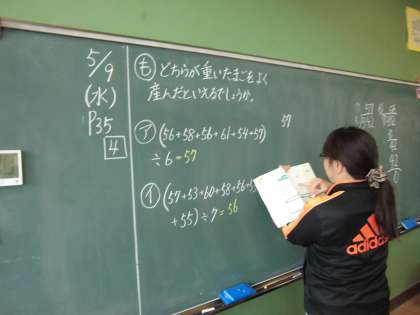 5/9
(水)
P35
4
も どちらが重いたまごをよく
産んだといえるでしょうか。
57
ア (56+58+56+61+54+57)
÷6=57
イ (57+53+60+58+56+
+55)÷7=56
57
42
42
0
adidas